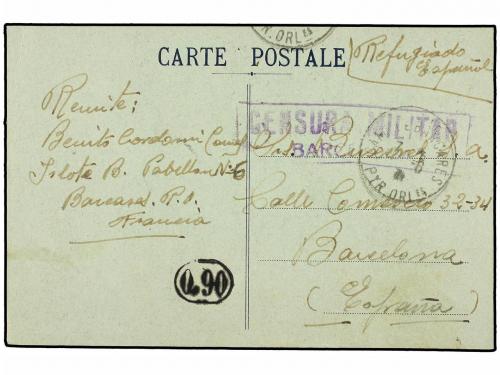 PYR. ORLES
CARTE POSTALE
Refugiado
Español
Remite:
Benito
Islote B. Pabellon Nº 6
Barcares. P. O.
Francia
CENSURA MILITAR
BAR
PYR. ORLES
Calle Comercio 32-34
Barcelona
(España)
0,90